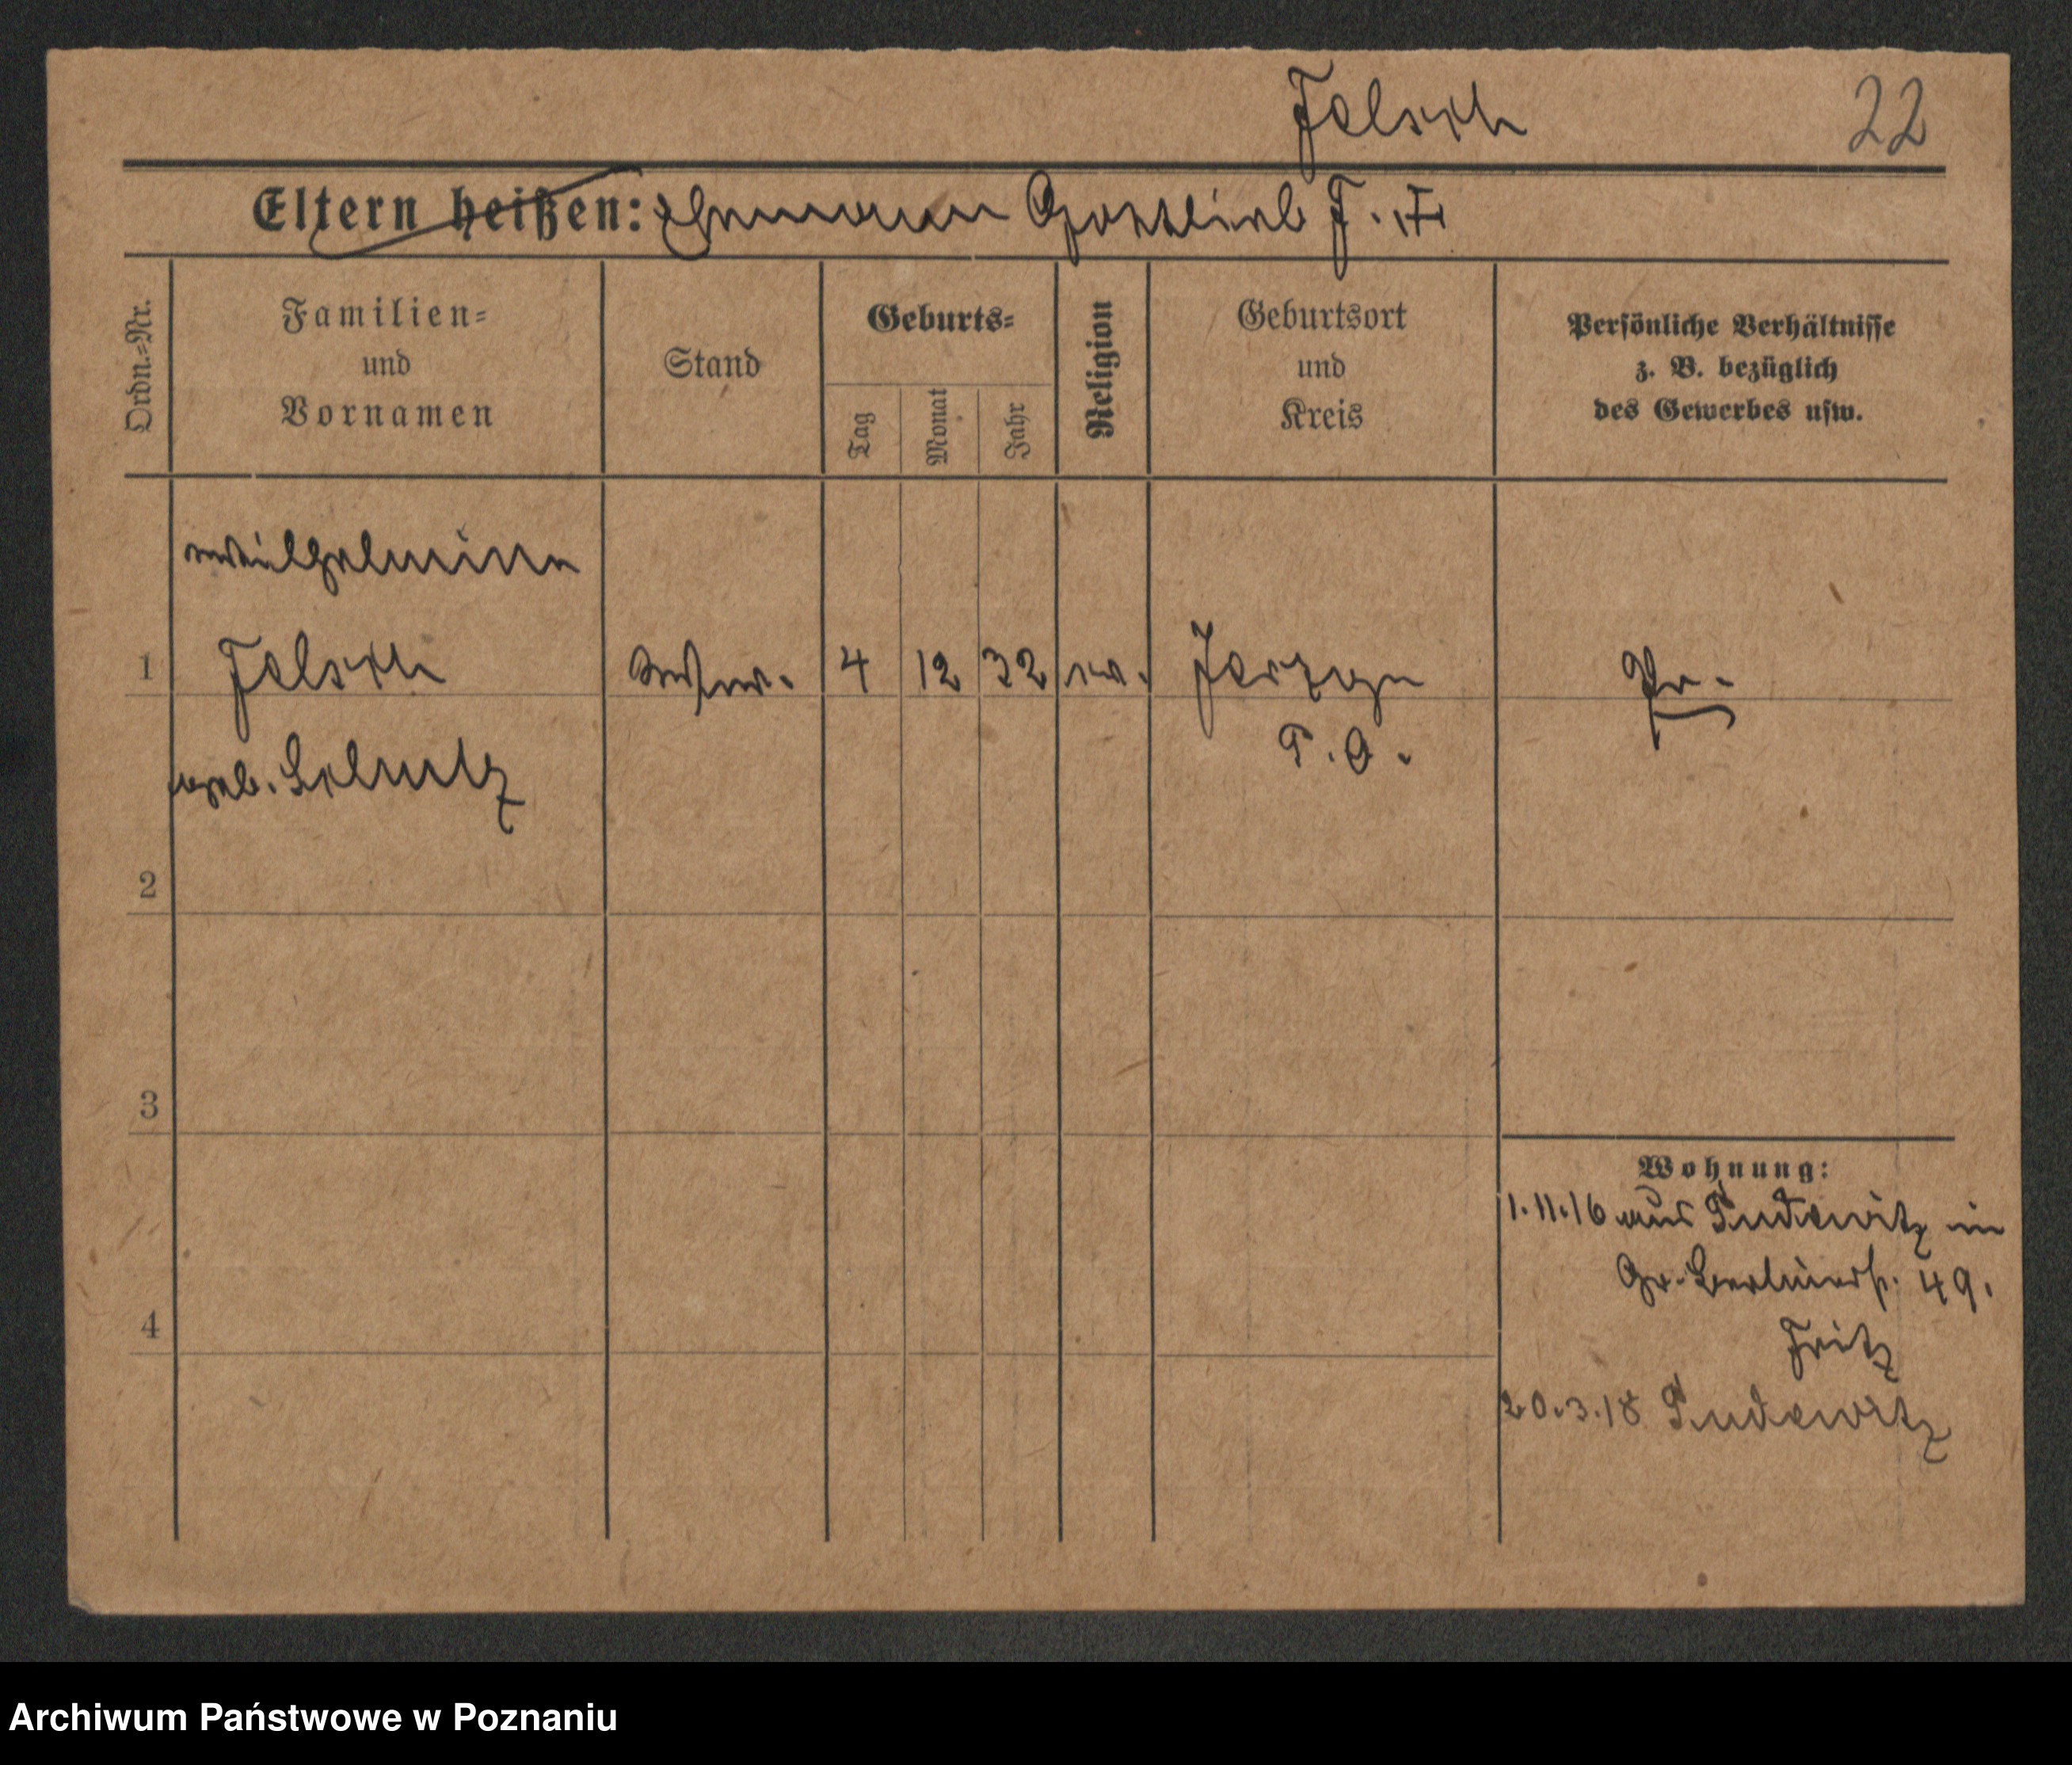 Felsch 22
Eltern heißen: Ehemann Gottlieb F. †
Ordn.=Nr.
Familien=
und
Vornamen
Stand
Geburts=
Tag
Monat
Jahr
Religion
Geburtsort
und
Kreis
Persönliche Verhältnisse
z. B. bezüglich
des Gewerbes usw.
Wilhelmine
1 Felsch Witwe. 4 12 32 ev. Pr.
P. O.
geb.
2
3
4
Wohnung:
1.11.16 aus Pudewitz in
Gr. Berlinerstr. 49.
Fritz
20.3.18 Pudewitz
Archiwum Państwowe w Poznaniu